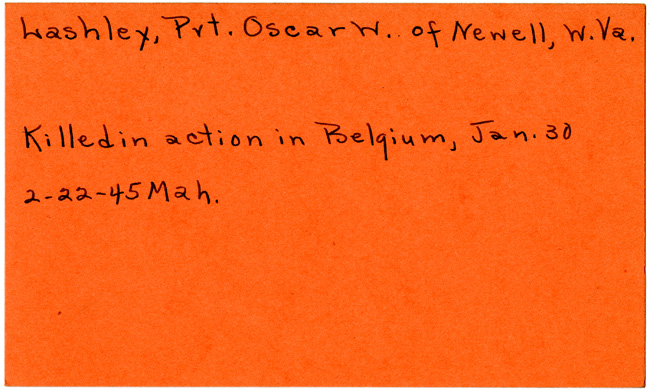 Lashley, Pvt. Oscar W. of Newell, W.Va.
Killed in action in Belgium, Jan. 30
2-22-45 Mah.